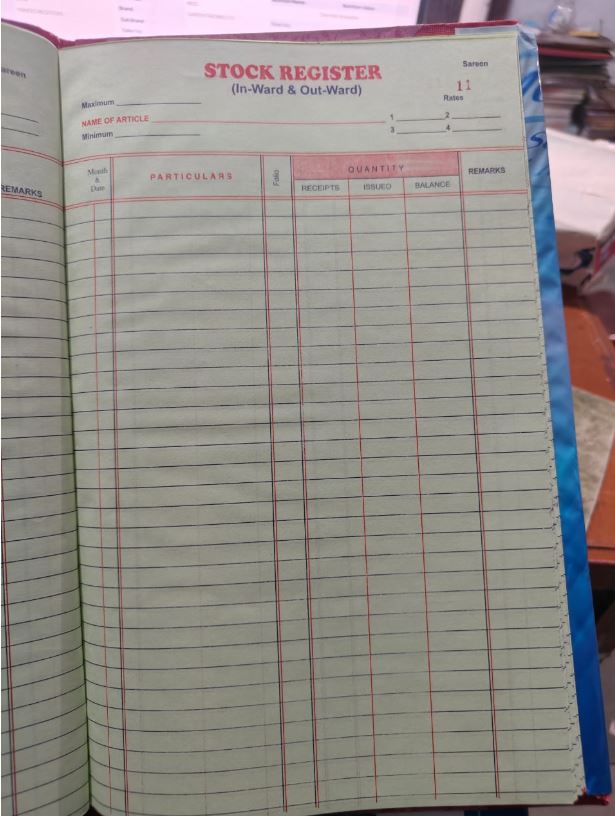 areen
REMARKS
STOCK REGISTER
(In-Ward & Out-Ward)
Sareen
11
Rates
Maximum
NAME OF ARTICLE
1 2
Minimum
3 4
Month & Date
PARTICULARS
Folio
QUANTITY
RECEIPTS ISSUED BALANCE
REMARKS